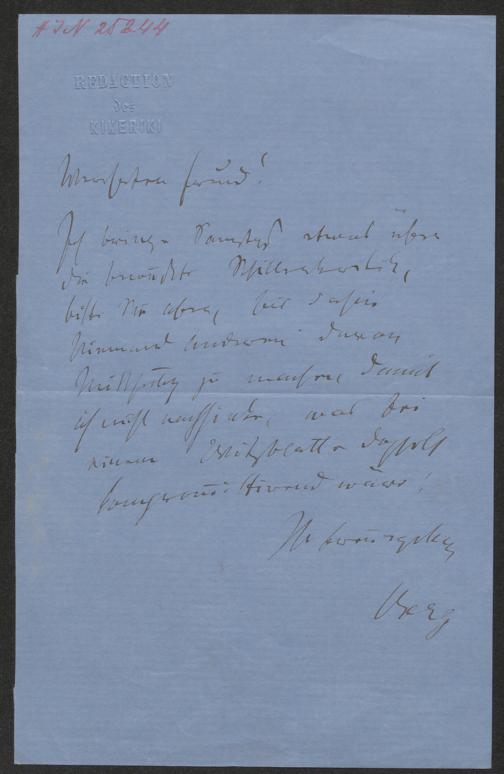 H.I.N. 25244
REDACTION
des
KIKERIKI
Verehrter Freund!
Ich bringe Samstag etwas über
die bewußte
bitte Sie aber, bis dahin
Niemand Anderem davon
Mittheilung zu machen, damit
ich nicht nachhinke, was bei
einem Witzblatte doppelt
compromittirend wäre!
Ihr
Berg